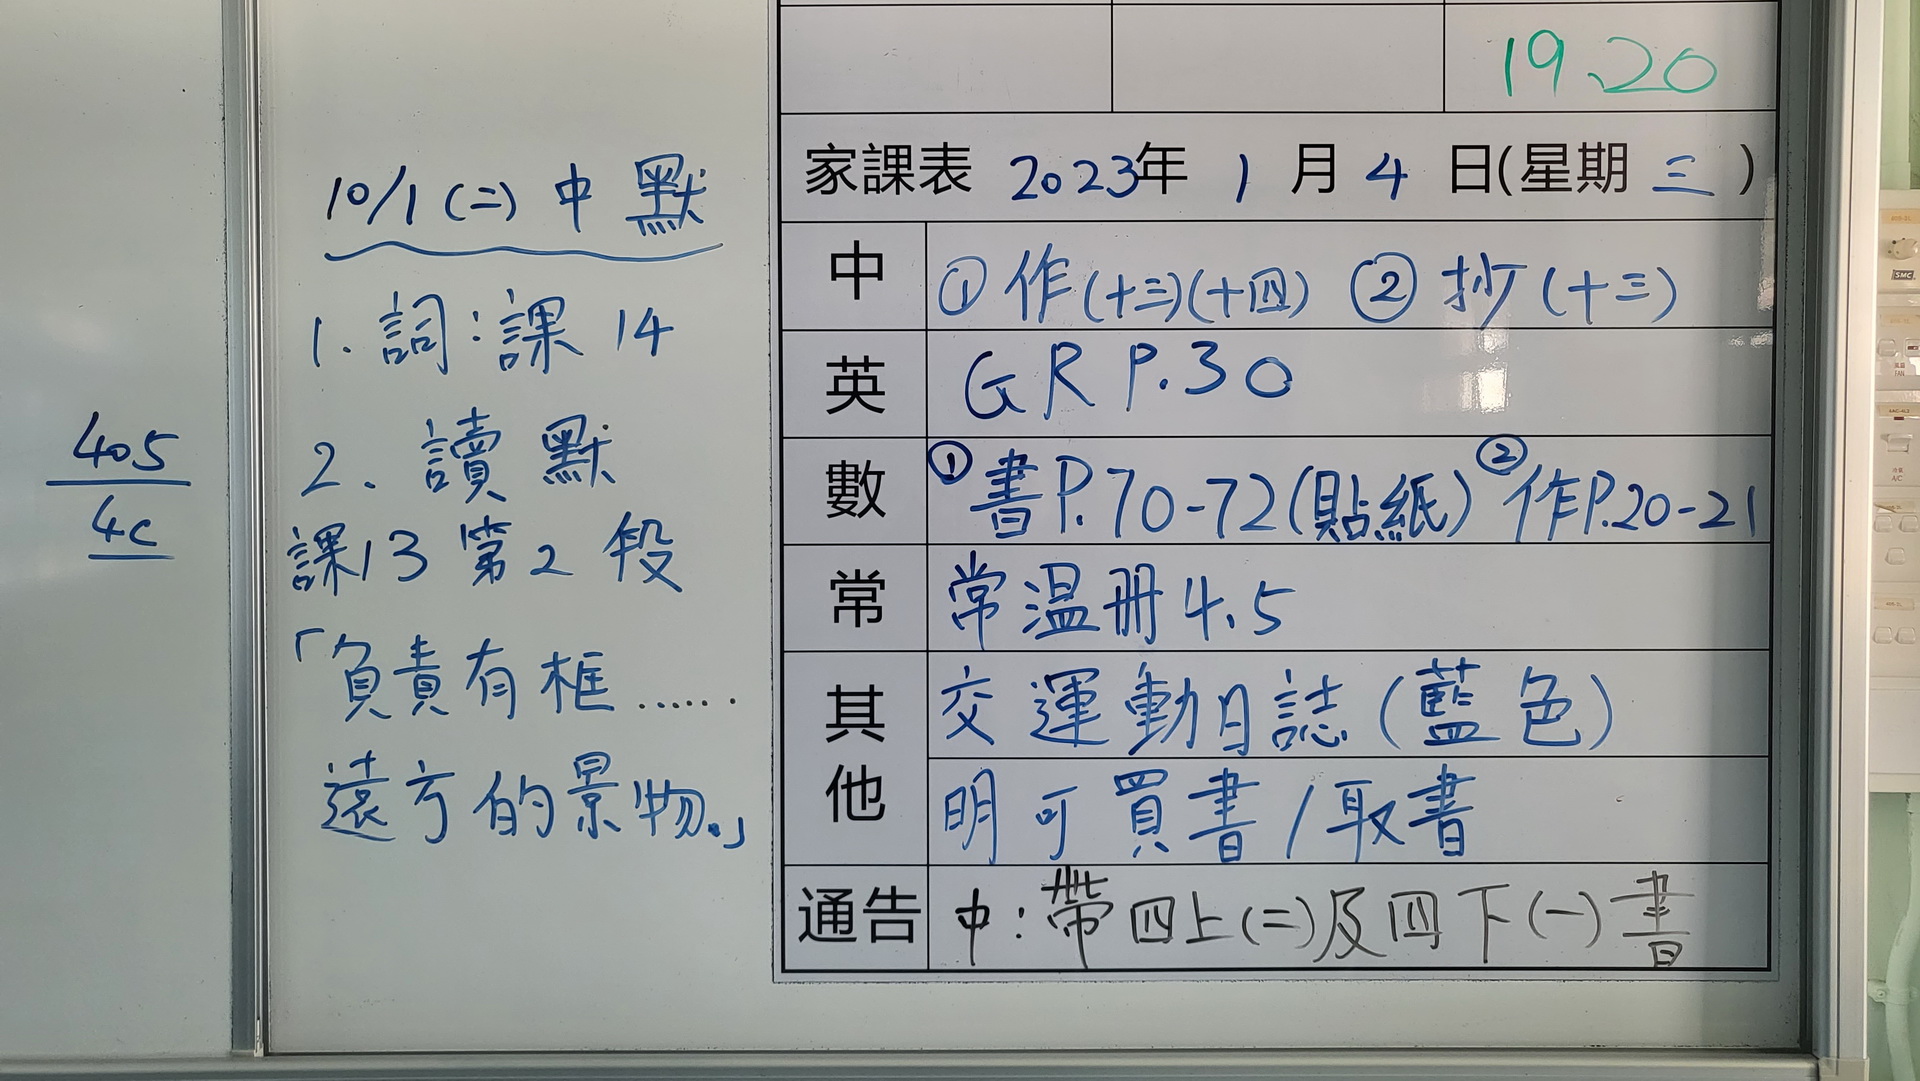 405
4C
10/1 (二) 中默
1. 詞：課 14
2. 讀默
課13 第2段
「負責有框……
遠方的景物。」
19、20
家課表 2023年 1 月 4 日(星期 三 )
中 ①作(十三)(十四) ②抄(十三)
英 GR P.30
數 ①書P.70-72(貼紙) ②作P.20-21
常 常温冊4.5
其他 交運動日誌(藍色)
明可買書/取書
通告 中：帶四上(二)及四下(一)書
SMC
FAN
A/C